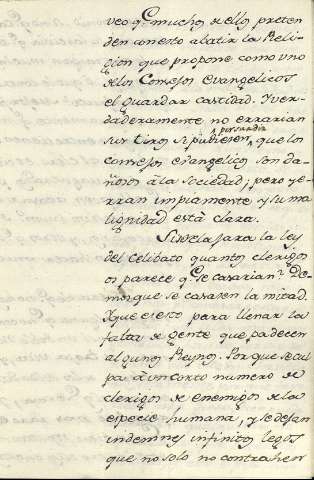 veo q.e muchos de ellos preten
den con esto abatir la Reli-
gion que propone como uno
de los Consejos Evangelicos
el guardar castidad. Y ver-
daderamente no errarian
sus tiros si pudiesen persuadir, que los
consejos evangelicos son da-
ñosos à la sociedad; pero ye-
rran impiamente y su ma
lignidad està clara.
Si se dejara la ley
del Celibato quantos clerigos
os parece q.e se casarian? De-
mos que se casasen la mitad.
Y que es esto para llenar la
falta de gente que padecen
algunos Reynos. Por que se cul
pa à un corto numero de
clerigos de enemigos de la
especie humana, y se dejan
indemnes infinitos legos
que no solo no contrahen